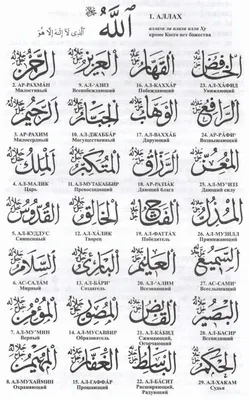 الله
الذى لا إله إلا هو
1. АЛЛАХ
аллази ла илаха илла Ху
кроме Коего нет божества
الرحمن العزيز القهار الخافض
2. АР-РАХМАН 9. АЛ-'АЗИЗ 16. АЛ-КАХХАР 23. АЛ-ХАФИД
Милостивый Всепобеждающий Покоряющий Унижающий
الرحيم الجبار الوهاب الرافع
3. АР-РАХИМ 10. АЛ-ДЖАББАР 17. АЛ-ВАХХАБ 24. АР-РАФИ'
Милосердный Могущественный Дарующий Возвышающий
الملك المتكبر الرزاق المعز
4. АЛ-МАЛИК 11. АЛ-МУТАКАББИР 18. АР-РАЗЗАК 25. АЛ-МУ'ИЗЗ
Царь Превосходящий Дающий блага Дающий силу
القدوس الخالق الفتاح المذل
5. АЛ-КУДДУС 12. АЛ-ХАЛИК 19. АЛ-ФАТТАХ 26. АЛ-МУЗИЛЛ
Священный Творец Победитель Принижающий
السلام البارئ العليم السميع
6. АС-САЛАМ 13. АЛ-БАРИ' 20. АЛ-'АЛИМ 27. АС-САМИ'
Мирный Создатель Всезнающий Всеслышащий
المؤمن المصور القابض البصير
7. АЛ-МУ'МИН 14. АЛ-МУСАВВИР 21. АЛ-КАБИД 28. АЛ-БАСИР
Верный Образователь Сжимающий, Всевидящий
المهيمن الغفار الباسط الحكم
8. АЛ-МУХАЙМИН 15. АЛ-ГАФФАР 22. АЛ-БАСИТ 29. АЛ-ХАКАМ
Охраняющий Прощающий Расширяющий, Судья
Радующий